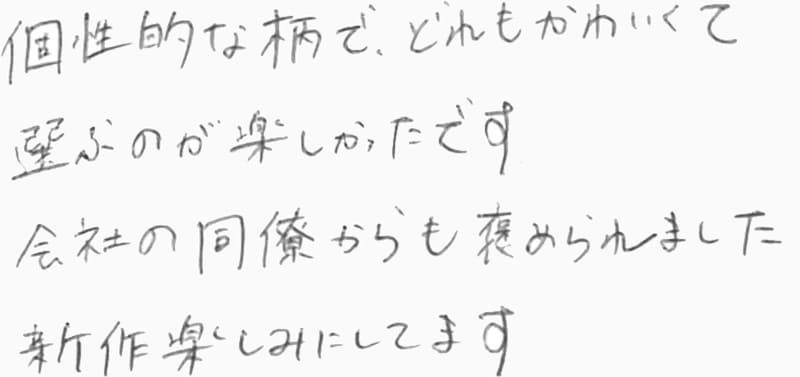 個性的な柄で、どれもかわいくて
選ぶのが楽しかったです
会社の同僚からも褒められました
新作楽しみにしてます